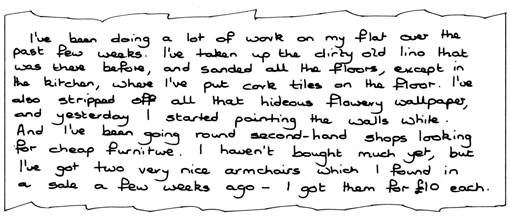 I've been doing a lot of work on my flat over the
past few weeks. I've taken up the dirty old lino that
was there before, and sanded all the floors, except in
the kitchen, where I've put cork tiles on the floor. I've
also stripped off all that hideous flowery wallpaper,
and yesterday I started painting the walls white.
And I've been going round second-hand shops looking
for cheap furniture. I haven't bought much yet, but
I've got two very nice armchairs which I found in
a sale a few weeks ago – I got them for £10 each.